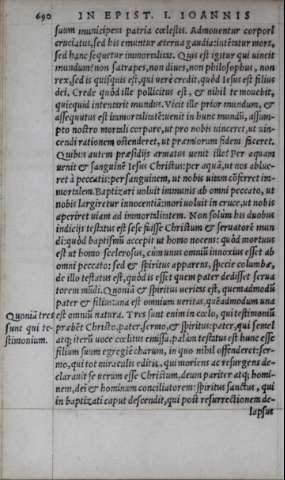 690 IN EPIST. I. IOANNIS
suum municipem patria cœlestis. Admouentur corpori
cruciatus, sed his emuntur æterna gaudia: intẽtatur mors,
sed hanc sequetur immortalitas. Quis est igitur qui uincit
mundum? non satrapes, non diues, non philosophus, non
rex, sed is quisquis est, qui uerè credit, quòd Iesus est filius
dei. Crede quòd ille pollicitus est, & nihil te mouebit,
quicquid intentarit mundus. Vicit ille prior mundum, &
assequutus est immortalitatẽ: uenit in hunc mundũ, assum-
pto nostro mortali corpore, ut pro nobis uinceret, ut uin-
cendi rationem ostenderet, ut præmiorum fidem faceret.
Quibus autem præsidijs armatus uenit ille? Per aquam
uenit & sanguinẽ Iesus Christus: per aquã, ut nos ablue-
ret à peccatis: per sanguinem, ut nobis uitam cõferret im-
mortalem. Baptizari uoluit immunis ab omni peccato, ut
nobis largiretur innocentiã: mori uoluit in cruce, ut nobis
aperiret uiam ad immortalitatem. Non solùm his duobus
indicijs testatus est sese fuisse Christum & seruatorẽ mun
di: quòd baptismũ accepit ut homo nocens: quòd mortuus
est ut homo scelerosus, cùm unus omniũ innoxius esset ab
omni peccato: sed & spiritus apparens, specie columbæ,
de illo testatus est, quòd is esset quem pater dedisset serua
torem mũdi. Quoniã & spiritus ueritas est, quemadmodũ
pater & filius: una est omnium ueritas, quẽadmodum una
Quoniã tres est omniũ natura. Tres sunt enim in cœlo, qui testimoniũ
sunt qui te- præbẽt Christo, pater, sermo, & spiritus: pater, qui semel
stimonium. atq; iterũ uoce cœlitus emissa, palàm testatus est hunc esse
filium suum egregiè charum, in quo nihil offenderet: ser-
mo, qui tot miraculis editis, qui moriens ac resurgens de-
clarauit se uerum esse Christum, deum pariter atq; homi-
nem, dei & hominum conciliatorem: spiritus sanctus, qui
in baptizati caput descendit, qui post resurrectionem de-
lapsus